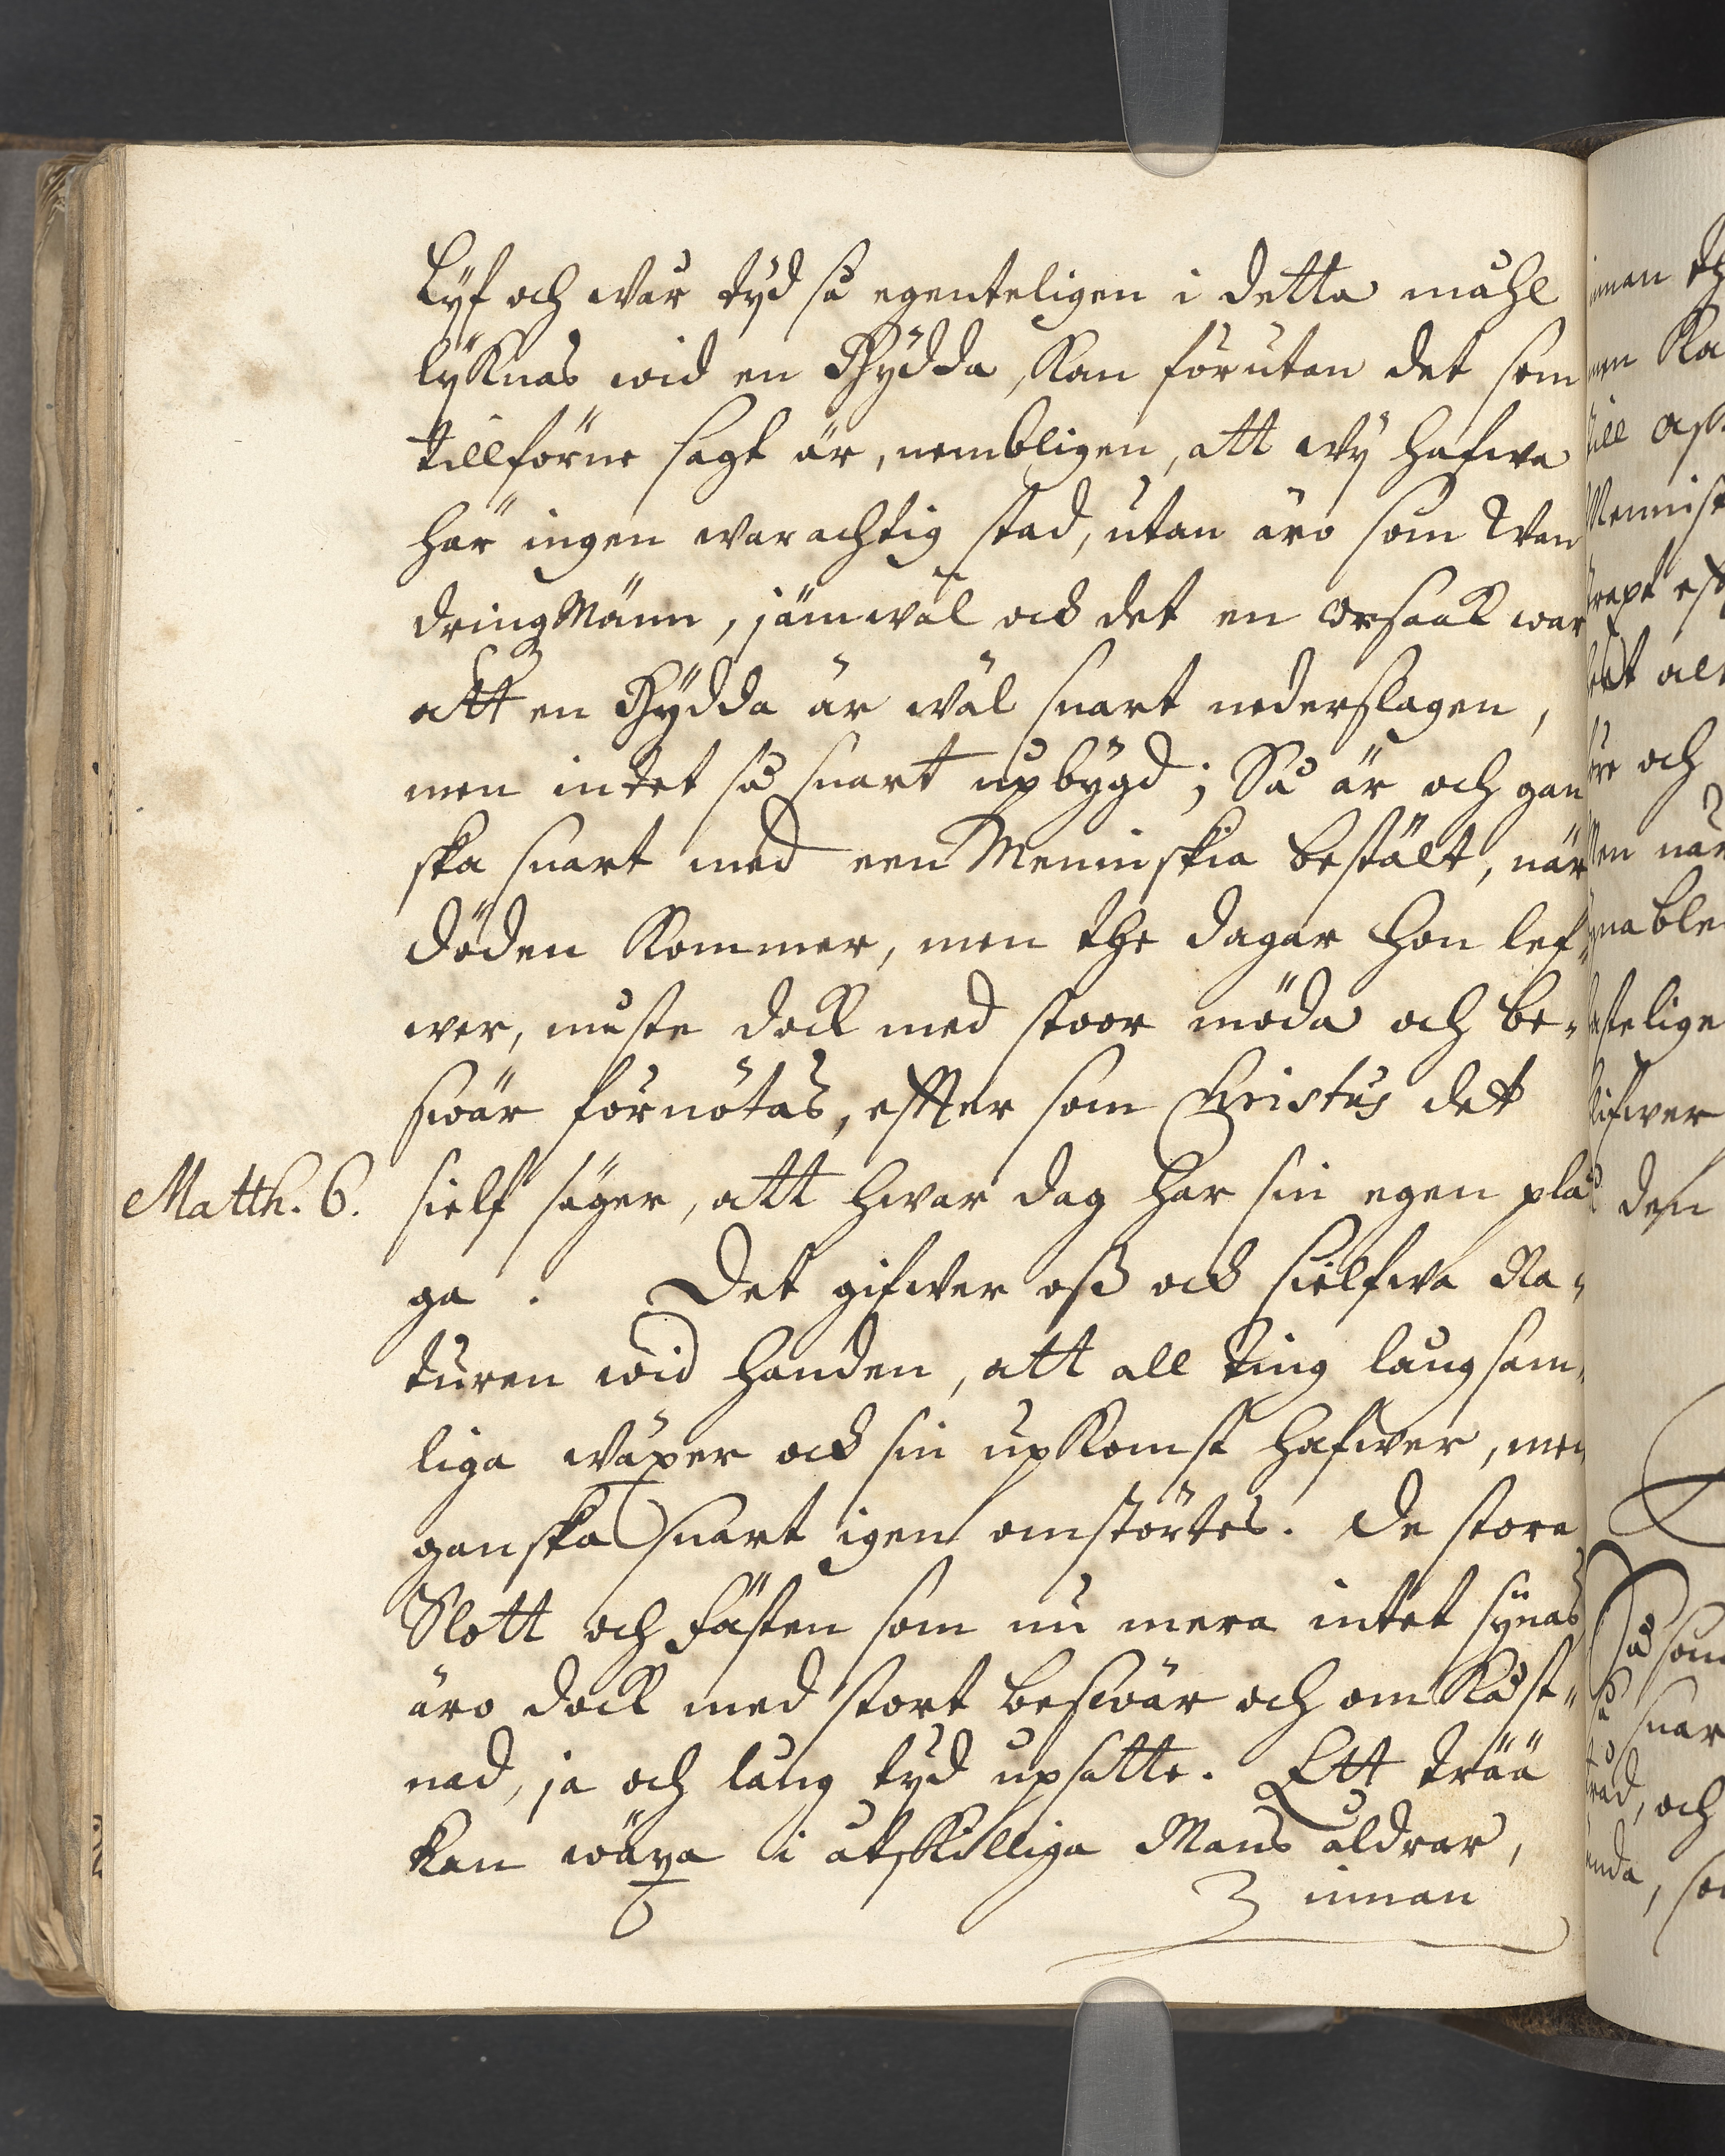 Lÿf och wår tÿd så egenteligen i detta måhl
lÿknas wid en Hÿdda, kan förutan det som
tillförne sagt är, nembligen, att wÿ hafwa
här ingen warachtig stad, utan äro som Wan
dringMänn, jämwäl ock det en orsaak war
att en Hÿdda är wäl snart nederslagen,
men intet så snart upbÿgd; Så är och gan
ska snart med een Menniskia bestält, när
döden kommer, men the dagar hon lef„
wer, måste dock med stoor möda och be„
swär förnötas, effter som Christus det
Matth. 6. sielf säger, att hwar dag har sin egen plå
ga. Det gifwer oß ock sielfwa Na„
turen wid handen, att all ting långsam„
liga wäxer ock sin upkomst hafwer, men
ganska snart igen omstörtes. De stora
Slott och fästen som nu mera intet sÿnas
äro dock med stort beswär och omkåst„
nad, ja och lång tÿd upsatte. Ett trää
kan wäxa i åtskilliga Mans åldrar,
innan